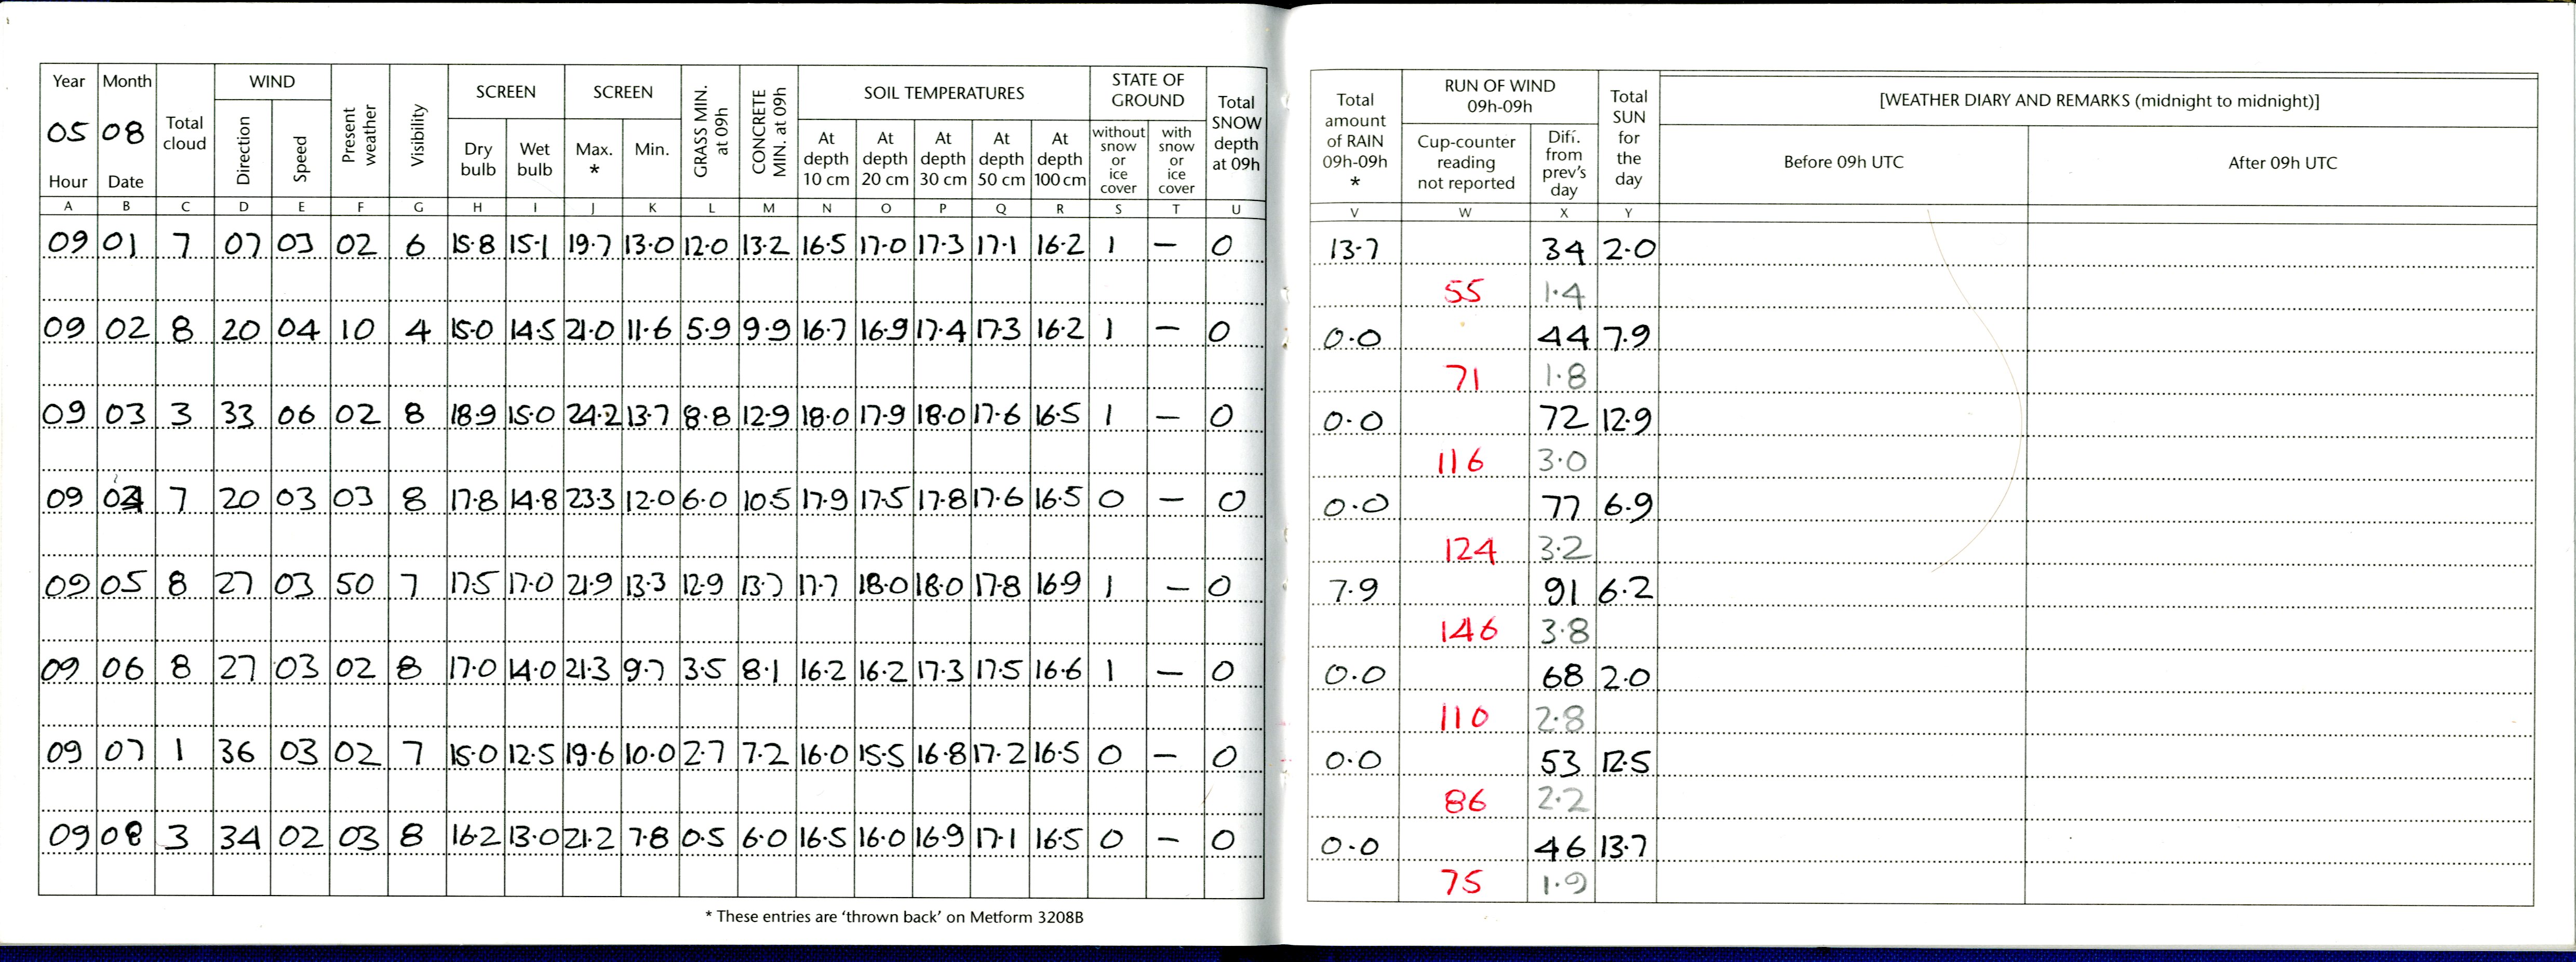 Year Month Total cloud WIND Present weather Visibility SCREEN SCREEN GRASS MIN. at 09h CONCRETE MIN. at 09h SOIL TEMPERATURES STATE OF GROUND Total SNOW depth at 09h
05 08
Hour Date Direction Speed Dry bulb Wet bulb Max. * Min. At depth 10 cm At depth 20 cm At depth 30 cm At depth 50 cm At depth 100 cm without snow or ice cover with snow or ice cover
A B C D E F G H I J K L M N O P Q R S T U
09 01 7 07 03 02 6 15.8 15.1 19.7 13.0 12.0 13.2 16.5 17.0 17.3 17.1 16.2 1 — 0
09 02 8 20 04 10 4 15.0 14.5 21.0 11.6 5.9 9.9 16.7 16.9 17.4 17.3 16.2 1 — 0
09 03 3 33 06 02 8 18.9 15.0 24.2 13.7 8.8 12.9 18.0 17.9 18.0 17.6 16.5 1 — 0
09 04 7 20 03 03 8 17.8 14.8 23.3 12.0 6.0 10.5 17.9 17.5 17.8 17.6 16.5 0 — 0
09 05 8 27 03 50 7 17.5 17.0 21.9 13.3 12.9 13.7 17.7 18.0 18.0 17.8 16.9 1 — 0
09 06 8 27 03 02 8 17.0 14.0 21.3 9.7 3.5 8.1 16.2 16.2 17.3 17.5 16.6 1 — 0
09 07 1 36 03 02 7 15.0 12.5 19.6 10.0 2.7 7.2 16.0 15.5 16.8 17.2 16.5 0 — 0
09 08 3 34 02 03 8 16.2 13.0 21.2 7.8 0.5 6.0 16.5 16.0 16.9 17.1 16.5 0 — 0
* These entries are ‘thrown back’ on Metform 3208B
Total amount of RAIN 09h-09h * RUN OF WIND 09h-09h Total SUN for the day [WEATHER DIARY AND REMARKS (midnight to midnight)]
Cup-counter reading not reported Diff. from prev's day Before 09h UTC After 09h UTC
V W X Y
13.7 34 2.0
55 1.4
0.0 44 7.9
71 1.8
0.0 72 12.9
116 3.0
0.0 77 6.9
124 3.2
7.9 91 6.2
146 3.8
0.0 68 2.0
110 2.8
0.0 53 12.5
86 2.2
0.0 46 13.7
75 1.9